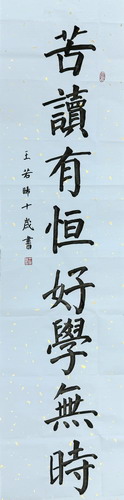 苦讀有恒好學無時
王若晞十歲書